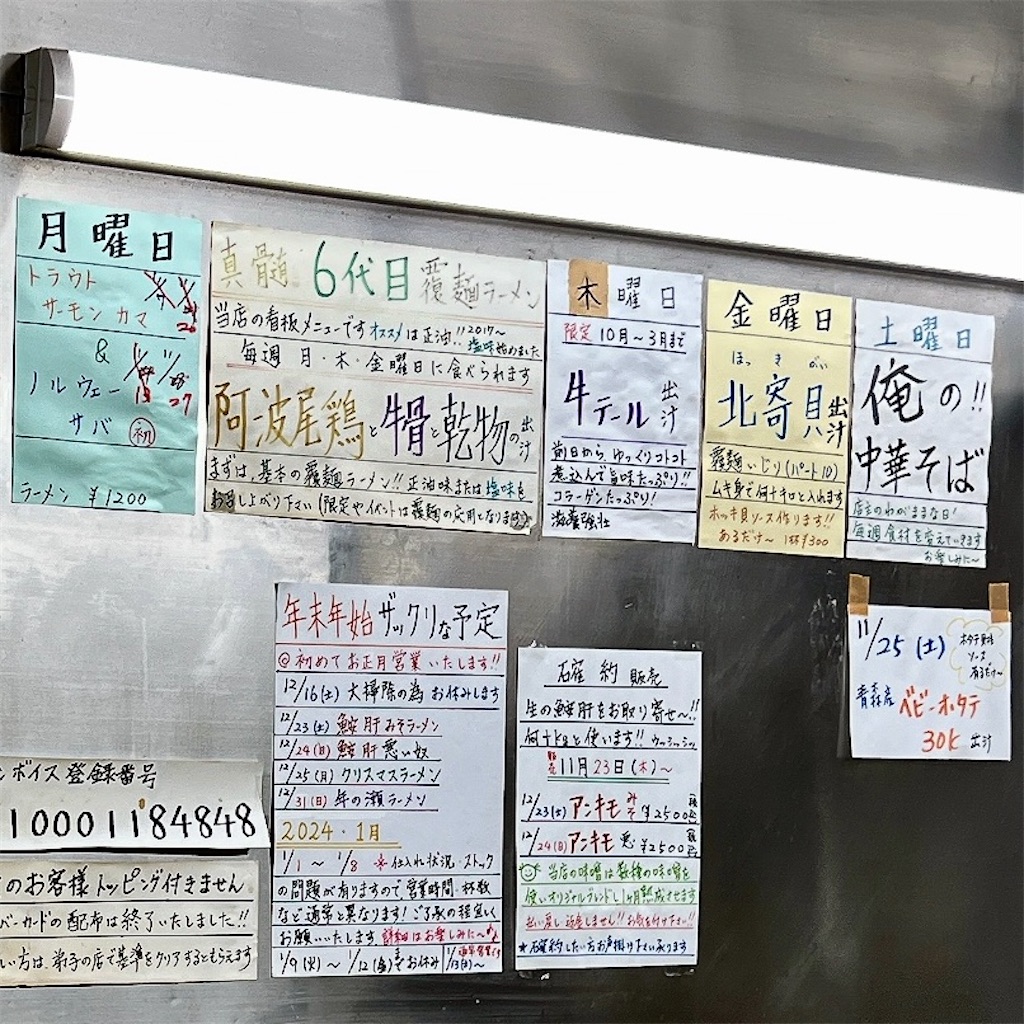 月曜日
トラウト
サーモンカマ
&
ノルウェー
サバ 初
ラーメン ¥1200
真骨髄 6代目 覆麺ラーメン
当店の看板メニューです オススメは正油!! 2017〜
塩味始めました
毎週 月・木・金曜日に食べられます
阿波尾鶏と牛骨と乾物の出汁
まずは、基本の覆麺ラーメン!! 正油味または塩味を
お召し上がり下さい(限定やイベントは覆麺の応用となります)
木曜日
限定 10月〜3月まで
牛テール出汁
前日から、ゆっくりコトコト
煮込んで旨味たっぷり!!
コラーゲンたっぷり!
滋養強壮
金曜日
ほっきがい
北寄貝出汁
覆麺いじり(パート10)
ムキ身で何十キロと入れます
ホッキ貝ソース作ります!!
あるだけ〜 1杯¥300
土曜日
俺の!!
中華そば
店主のわがままな日!
毎週食材を変えていきます
お楽しみに〜
年末年始ザックリな予定
@初めてお正月営業いたします!!
12/16(土)大掃除の為お休みします
12/23(土)鮟肝みそラーメン
12/24(日)鮟肝悪い奴
12/25(月)クリスマスラーメン
12/31(日)年の瀬ラーメン
2024・1月
1/1〜1/8 ※仕入れ状況・ストック
の問題が有りますので、営業時間・杯数
など通常と異なります!ご了承の程宜しく
お願いいたします 詳細はお楽しみに〜
1/9(火)〜1/12(金)までお休み 1/13(土)〜通常営業です
確約販売
生の鮟肝をお取り寄せ〜!!
何十kgと使います!! ウッシッシッ
11月23日(木)〜
12/23(土)アンキモみそ¥2500
12/24(日)アンキモ悪¥2500
当店の味噌は数種の味噌を
使いオリジナルブレンドし1ヶ月熟成させます
払い戻し返金しません!! お気を付け下さい!!
★確約したい方お声掛け下さい承ります
11/25(土)
ホタテ貝柱
ソース
有るだけ〜
青森産
ベビーホタテ
30k 出汁
ンボイス登録番号
10001184848
のお客様トッピング付きません
バーカードの配布は終了いたしました!!
しい方は、弟子の店で基準をクリアするともらえます